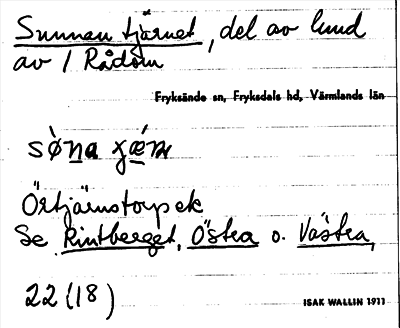 Sunnan tjärnet, del av lund
av 1 Rådom
Fryksände sn, Fryksdals hd, Värmlands län
Örtjärnstorp ek
Se Rintberget, Östra o. Västra,
22 (18)
ISAK WALLIN 1911